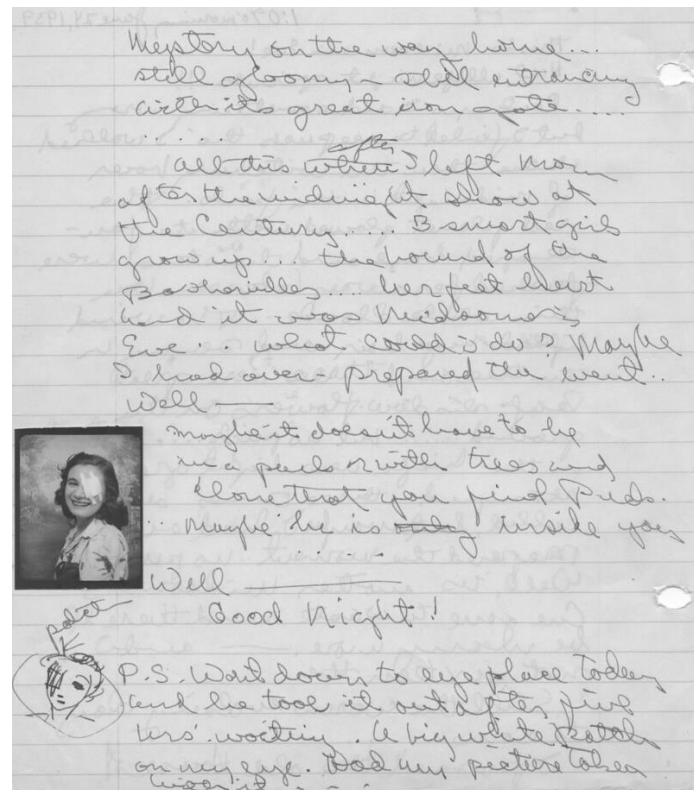 Mystery on the way home...
still gloomy & still entrancing
with its great iron gate....
. . . . .
after
All this when I left Mom
after the midnight show at
the Century.... 3 smart girls
grow up... the hound of the
Baskervilles.... her feet hurt
and it was Midsomer's
Eve.. what could i do? Maybe
I had over-prepared the event..
Well —
Maybe it doesn't have to be
in a park or with trees and
alone that you find Puds.
... Maybe he is only inside you
. . . .
Well —
Good Night!
patch
P.S. Went down to eye place today
and he took it out after five
hrs' waiting. A big white patch
on my eye. Had my picture taken
with it. . . .